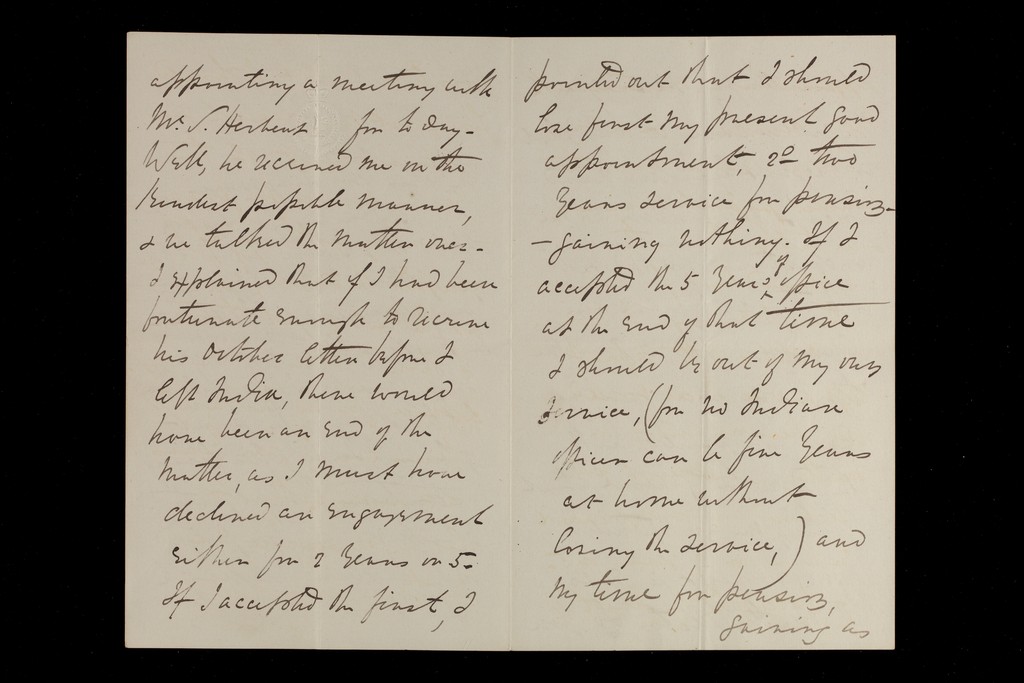 appointing a meeting with
Mr. S. Herbert for to day-
Well, he received me in the
kindest possible manner,
& we talked the matter over-
I explained that if I had been
fortunate enough to receive
his October letter before I
left India, there would
have been an end of the
matter, as I must have
declined an engagement
either for 2 years or 5-
If I accepted the first, I
pointed out that I should
lose first my present good
appointment, 2o two
years service for pension-
- gaining nothing. If I
accepted the 5 years of office
at the end of that time
I should be out of my own
service, (for no Indian
officer can be five years
at home without
losing the service,) and
my time for pension,
gaining as